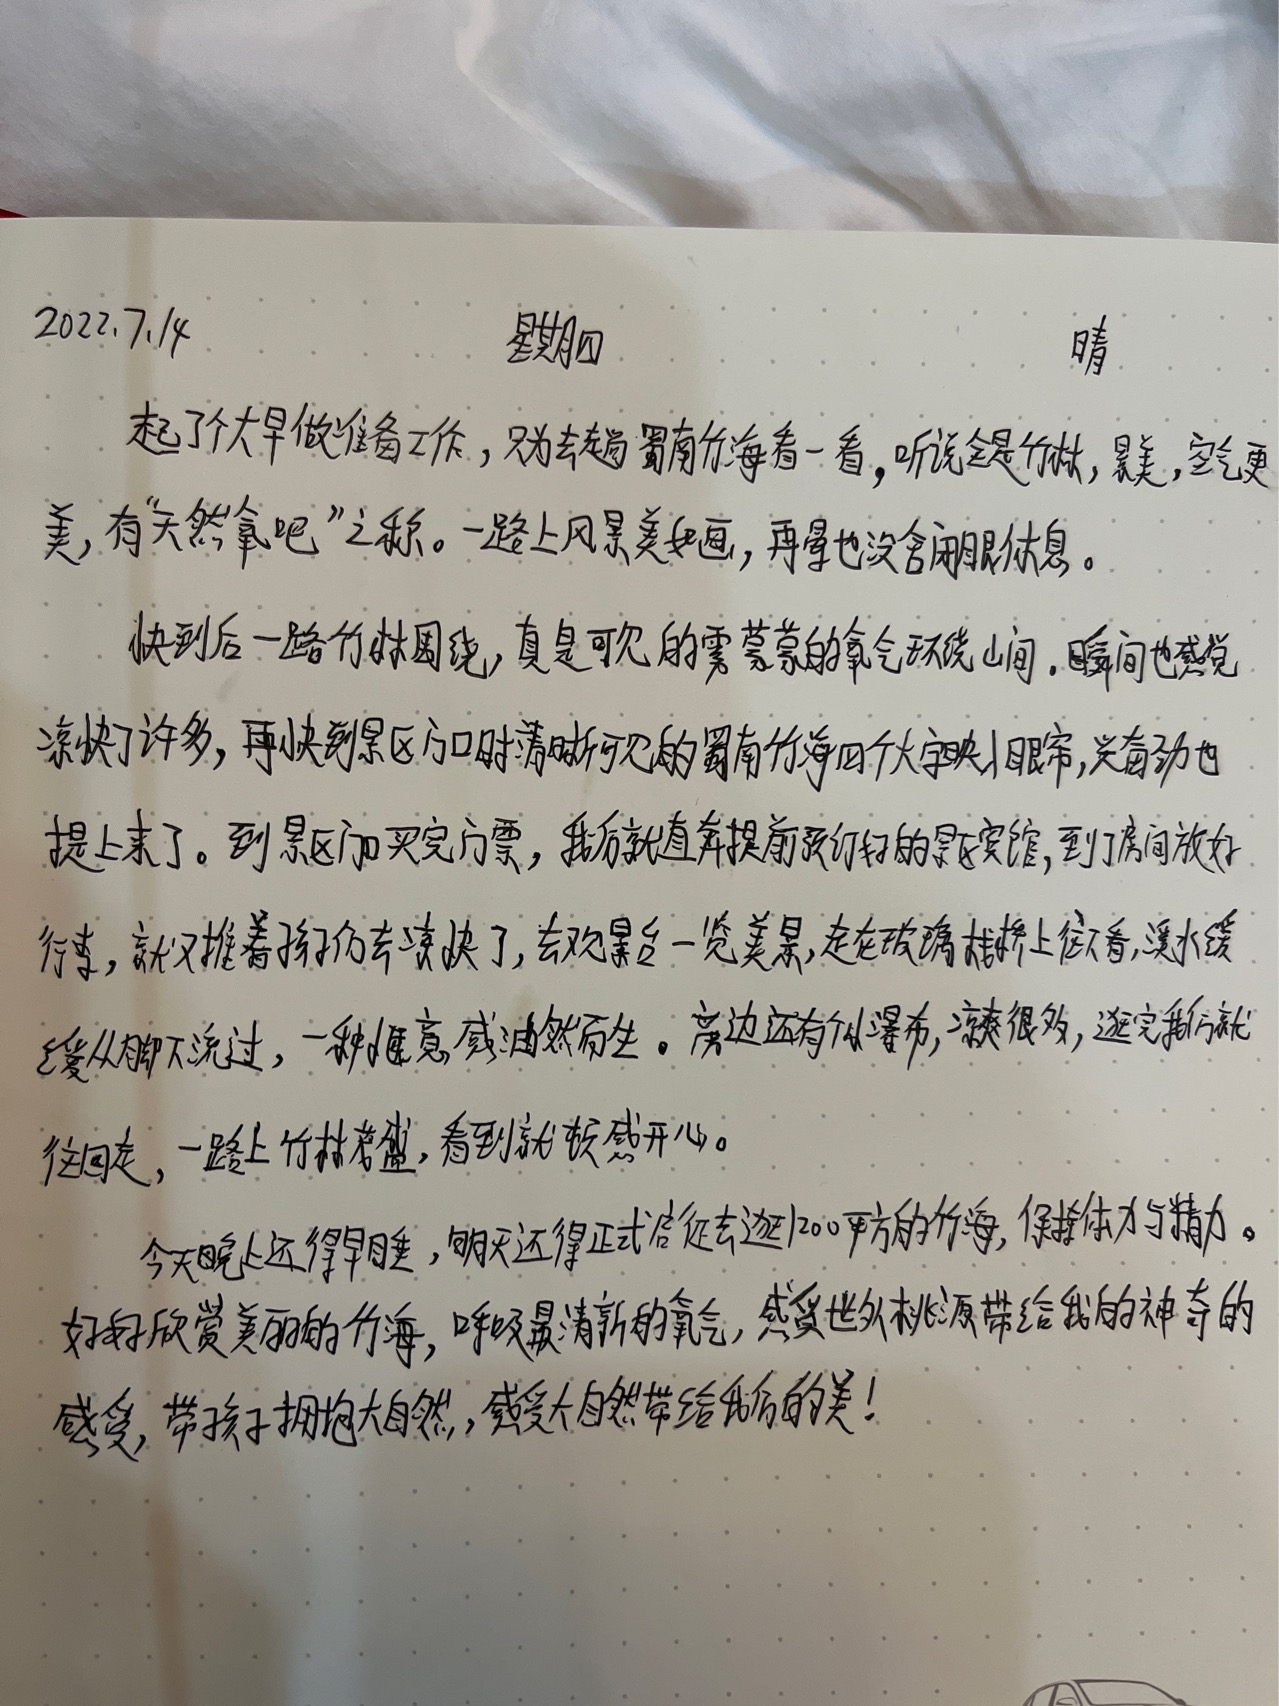 2022.7.14 星期四 晴
起了个大早做准备工作，只为去趟蜀南竹海看一看，听说全是竹林，景美，空气更
美，有“天然氧吧”之称。一路上风景美如画，再晕也没舍闭眼休息。
快到后一路竹林围绕，真是可见的雾蒙蒙的氧气环绕山间．瞬间也感觉
凉快了许多，再快到景区门口时清晰可见的蜀南竹海四个大字映入眼帘，兴奋劲也
提上来了。到景区门口买完门票，我们就直奔提前预订好的景区宾馆，到了房间放好
行李，就又推着孩子们去凉快了，去观景台一览美景，走在玻璃栈桥上往下看，溪水缓
缓从脚下流过，一种惬意感油然而生。旁边还有个小瀑布，凉爽很多，逛完我们就
往回走，一路上竹林茂盛，看到就顿感开心。
今天晚上还得早睡，明天还得正式启征去逛1200平方的竹海，保持体力与精力。
好好欣赏美丽的竹海，呼吸最清新的氧气，感受世外桃源带给我的神奇的
感受，带孩子拥抱大自然，感受大自然带给我们的美！